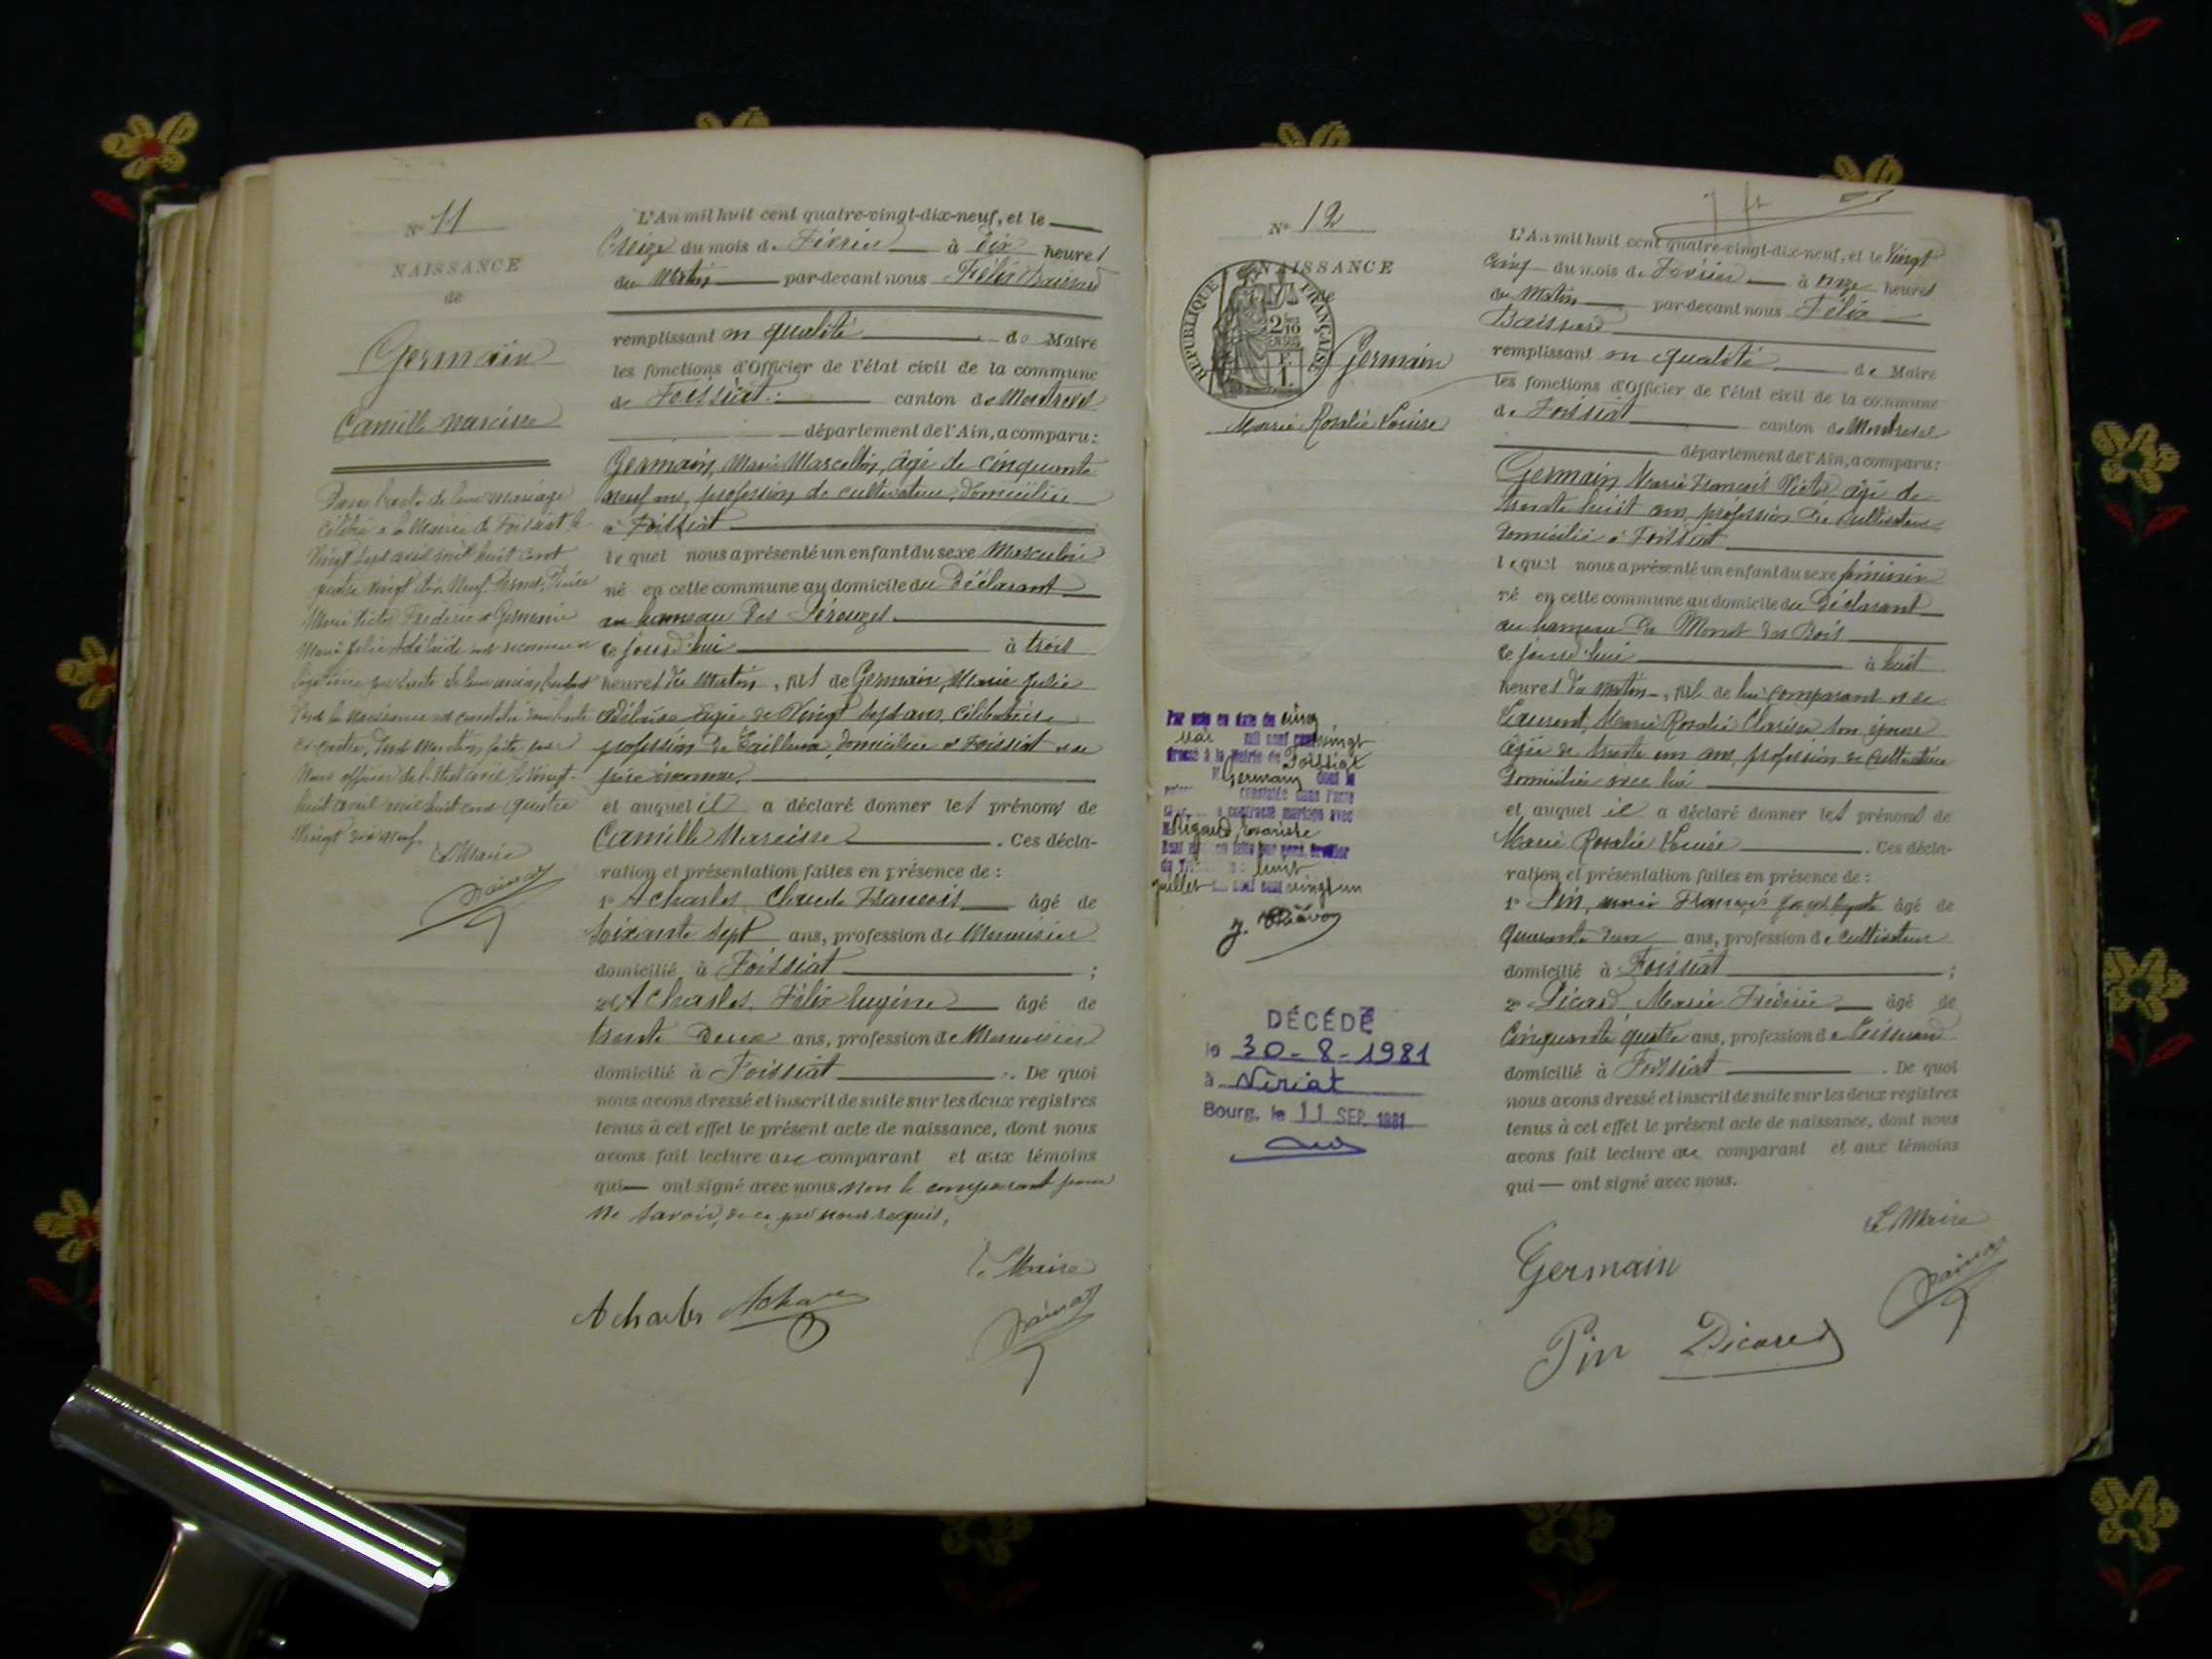 N° 11
NAISSANCE
de
Germain
Camille Narcisse
Dans l'acte de leur mariage
célébré à la Mairie de Foissiat le
vingt sept avril mil huit cent
quatre vingt dix neuf
Marie Victor Frédéric et Germain
Marie Julie Adélaïde ont reconnu et
légitimé
dont la naissance est constatée dans l'acte
ci contre, Dont Mention faite par
Nous officier de l'état civil le vingt-
huit avril mil huit cent quatre
vingt dix neuf.
Le Maire
L'An mil huit cent quatre-vingt-dix-neuf, et le
du mois de Février à dix heures
du Matin par-devant nous Félix
remplissant en qualité de Maire
les fonctions d'Officier de l'état civil de la commune
de Foissiat canton de Montrevel
département de l'Ain, a comparu:
Germain, Marie Marcellin, âgé de cinquante
neuf ans, profession de cultivateur, domicilié
à Foissiat
lequel nous a présenté un enfant du sexe Masculin
né en cette commune au domicile du Déclarant
au hameau des
ce jourd'hui à trois
heures du Matin, fils de Germain, Marie Julie
Adélaïde âgée de vingt sept ans, célibataire
profession de Tailleuse, domiciliée à Foissiat et de
père inconnu.
et auquel il a déclaré donner les prénoms de
Camille Narcisse. Ces décla-
ration et présentation faites en présence de :
1° Acharles, Claude François âgé de
soixante sept ans, profession de Menuisier
domicilié à Foissiat ;
2° Acharles, Félix Eugène âgé de
trente deux ans, profession de Menuisier
domicilié à Foissiat. De quoi
nous avons dressé et inscrit de suite sur les deux registres
tenus à cet effet le présent acte de naissance, dont nous
avons fait lecture au comparant et aux témoins
qui ont signé avec nous non le comparant pour
ne savoir, de ce par nous requis.
Le Maire
Acharles
N° 12
NAISSANCE
de
RÉPUBLIQUE FRANÇAISE
2/10
EN SUS
Germain
Marie Rosalie Louise
Par acte en date du cinq
Mai mil neuf cent vingt
dressé à la Mairie de Foissiat
Germain dont la
constatée dans l'acte
a contracté mariage avec
Rigaud, Evariste
Dont mention faite par nous, Greffier
du huit
juillet mil neuf cent vingt un
DÉCÉDÉ
le 30-8-1981
à Viriat
Bourg, le 11 SEP. 1981
L'An mil huit cent quatre-vingt-dix-neuf, et le vingt
cinq du mois de Février à onze heures
du Matin par-devant nous Félix
remplissant en qualité de Maire
les fonctions d'Officier de l'état civil de la commune
de Foissiat canton de Montrevel
département de l'Ain, a comparu:
Germain, Marie François Victor âgé de
trente huit ans, profession de cultivateur
domicilié à Foissiat
lequel nous a présenté un enfant du sexe féminin
né en cette commune au domicile du Déclarant
au hameau du Mont des Bois
ce jourd'hui à huit
heures du matin, fille de lui comparant et de
Laurent, Marie Rosalie Clarisse son épouse
âgée de trente un ans, profession de cultivatrice
domiciliée avec lui
et auquel il a déclaré donner les prénoms de
Marie Rosalie Louise. Ces décla-
ration et présentation faites en présence de :
1° Pin, Marie François âgé de
Quarante deux ans, profession de cultivateur
domicilié à Foissiat ;
2° Picard Marie Frédéric âgé de
cinquante quatre ans, profession de
domicilié à Foissiat. De quoi
nous avons dressé et inscrit de suite sur les deux registres
tenus à cet effet le présent acte de naissance, dont nous
avons fait lecture au comparant et aux témoins
qui ont signé avec nous.
Le Maire
Germain
Pin Picard